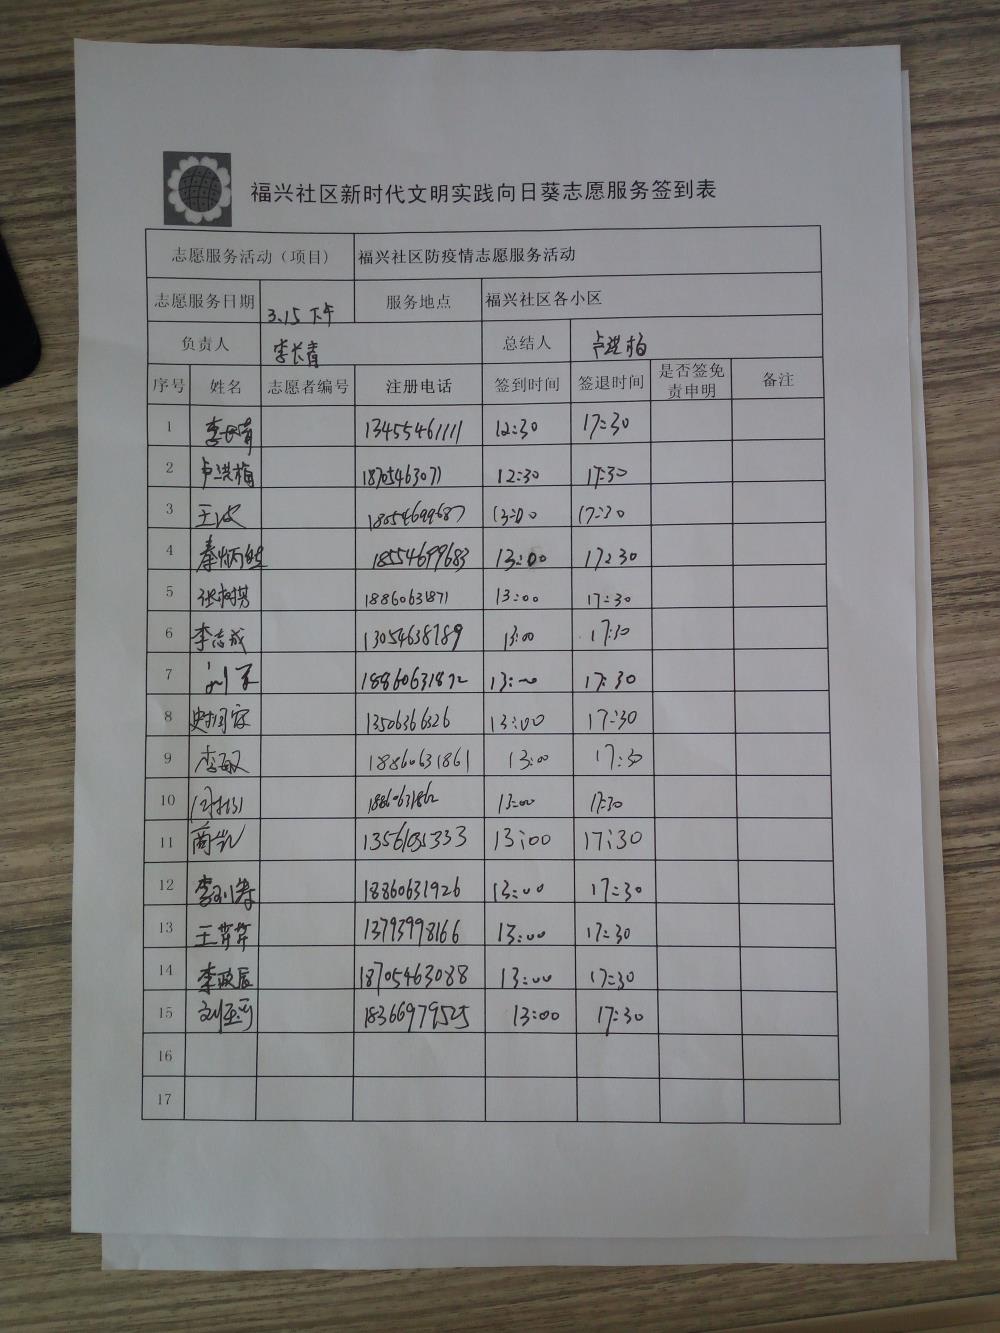 福兴社区新时代文明实践向日葵志愿服务签到表
志愿服务活动（项目） 福兴社区防疫情志愿服务活动
志愿服务日期 3.15 下午 服务地点 福兴社区各小区
负责人 李长青 总结人 卢洪梅
序号 姓名 志愿者编号 注册电话 签到时间 签退时间 是否签免责申明 备注
1 李长青 13455461111 12:30 17:30
2 卢洪梅 18705463071 12:30 17:30
3 王波 18054699687 13:00 17:30
4 秦炳 18554699683 13:00 17:30
5 张 18860631871 13:00 17:30
6 李志成 13054638789 13:00 17:30
7 刘 18860631872 13:00 17:30
8 13506366326 13:00 17:30
9 李敏 18860631861 13:00 17:30
10 18860631862 13:00 17:30
11 商凯 13561035333 13:00 17:30
12 李 18860631926 13:00 17:30
13 王芹芹 13793998166 13:00 17:30
14 李政辰 18705463088 13:00 17:30
15 刘 18366979525 13:00 17:30
16
17